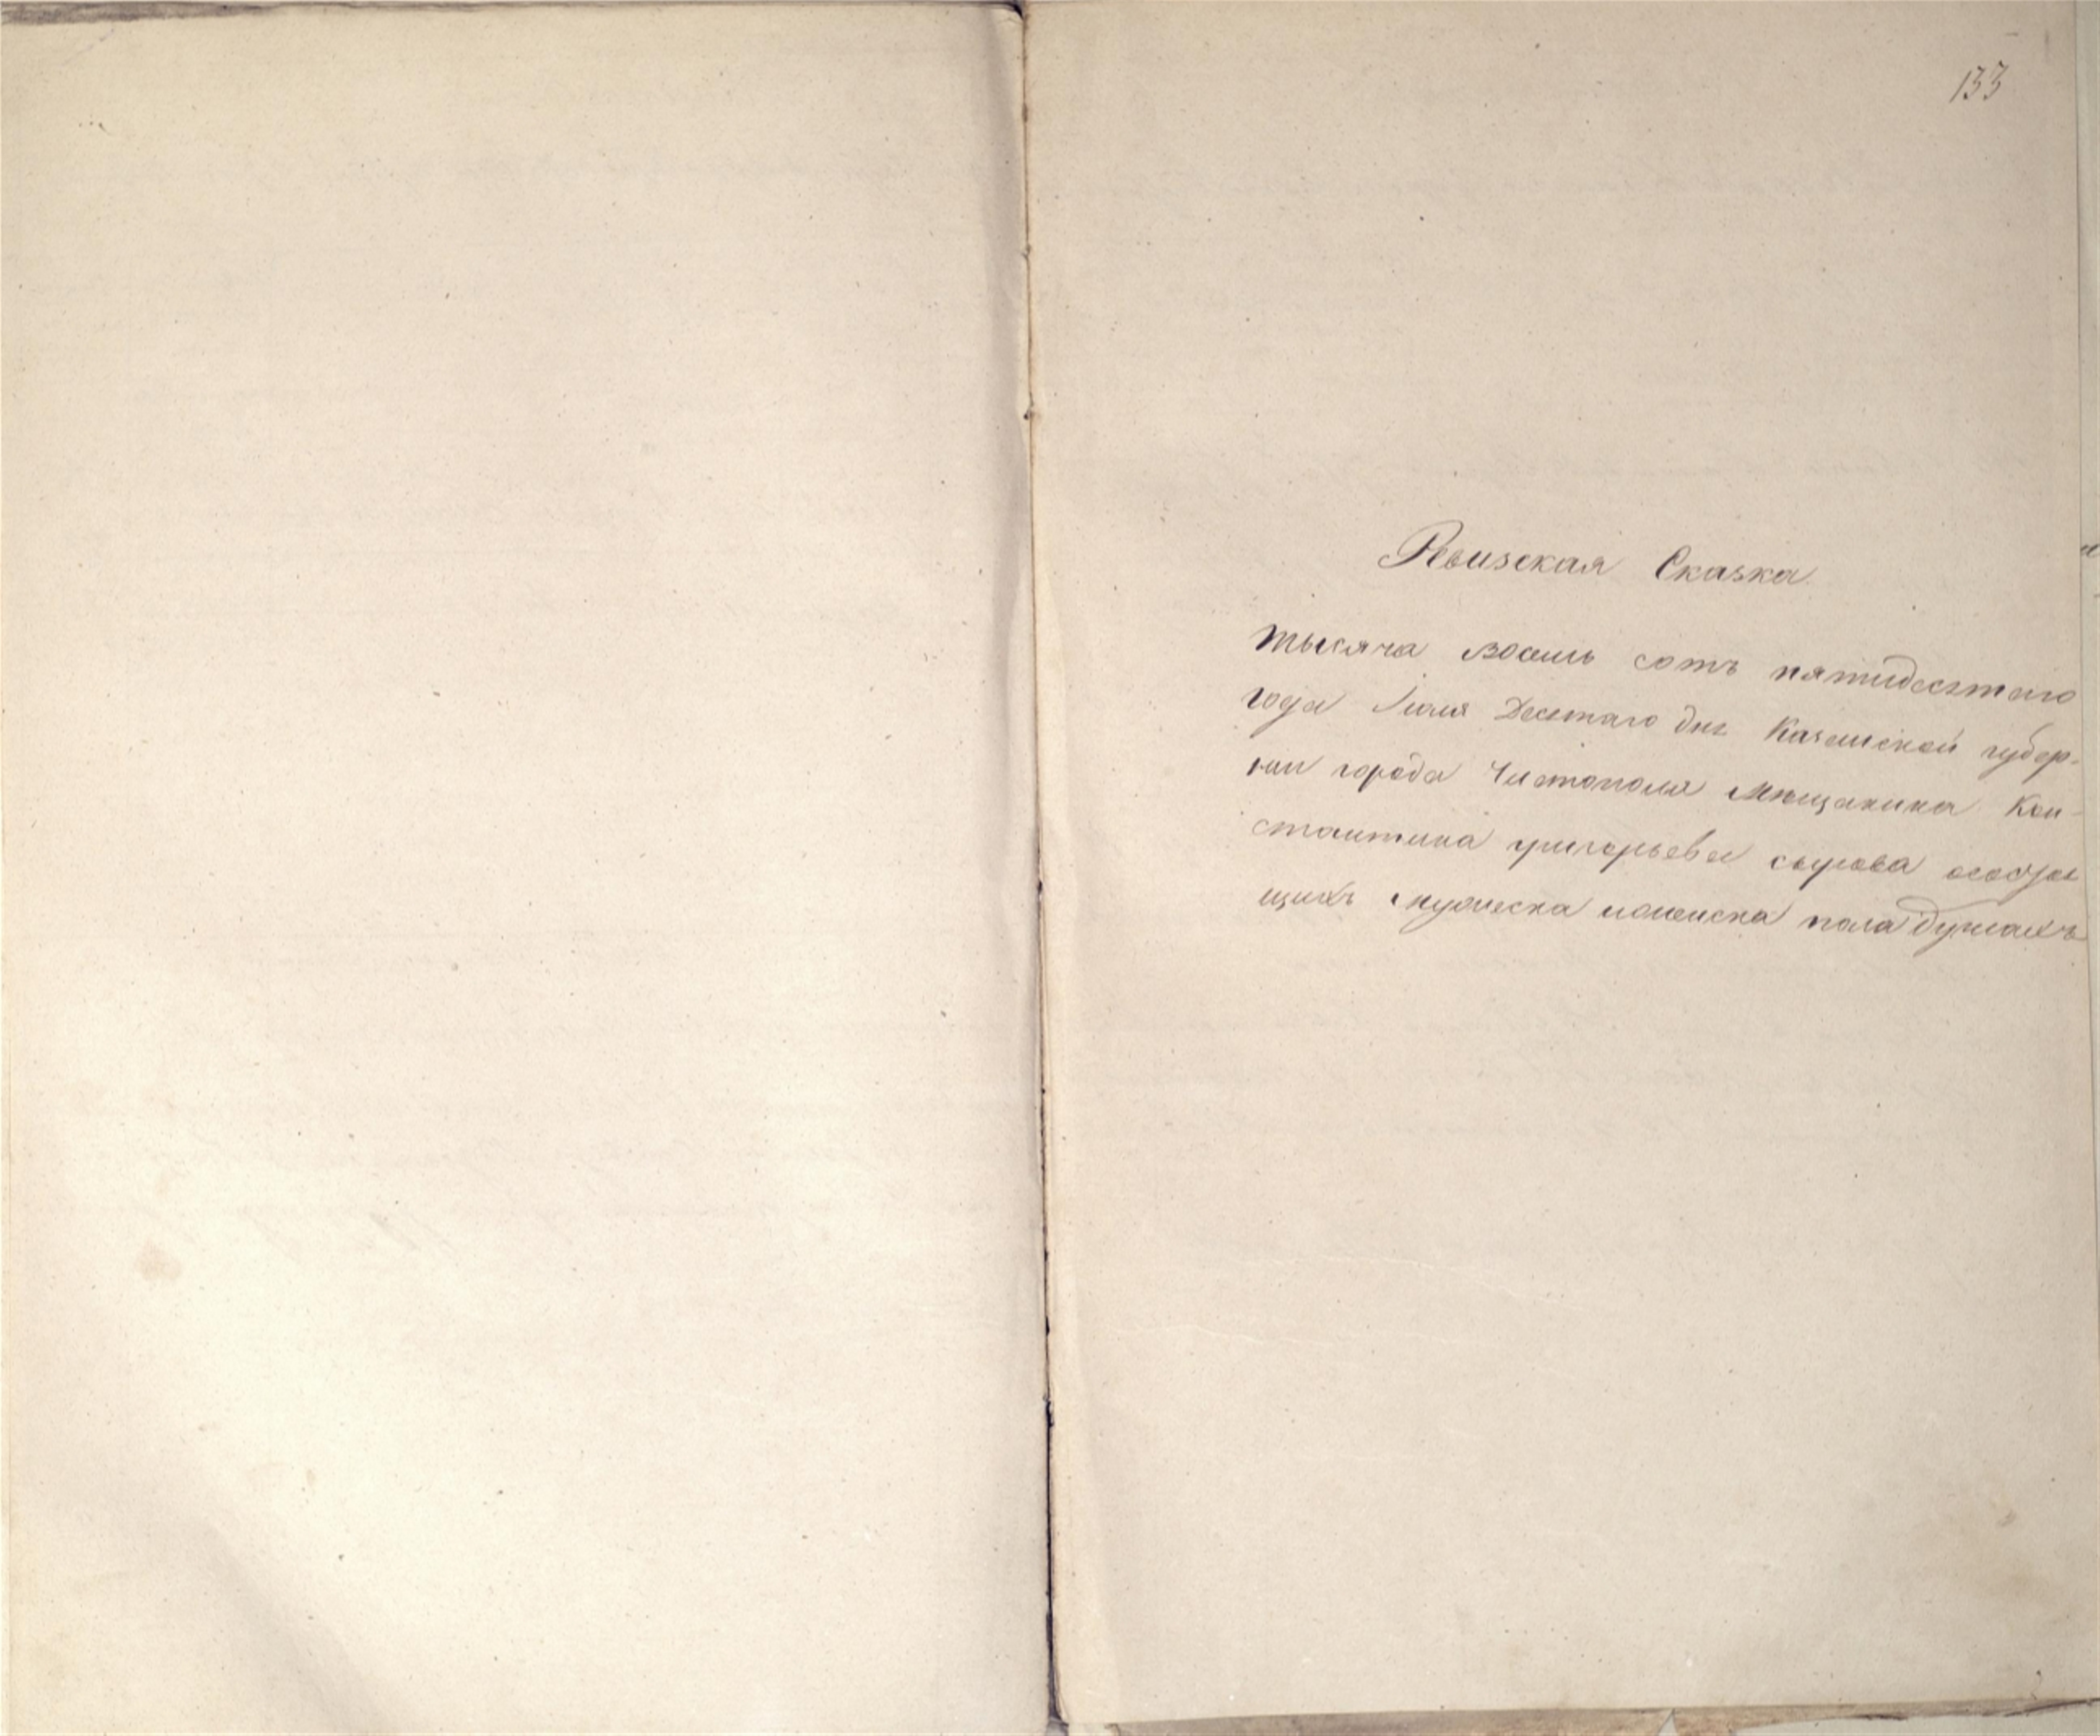 133
Ревизская Сказка
тысяча восемь сотъ пятидесятаго
года Июля Десятаго дня Казанской губер-
нии города Чистополя Мѣщанина Кон-
стантина григорьева сырова осостоя
щихъ мужеска иженска пола душахъ